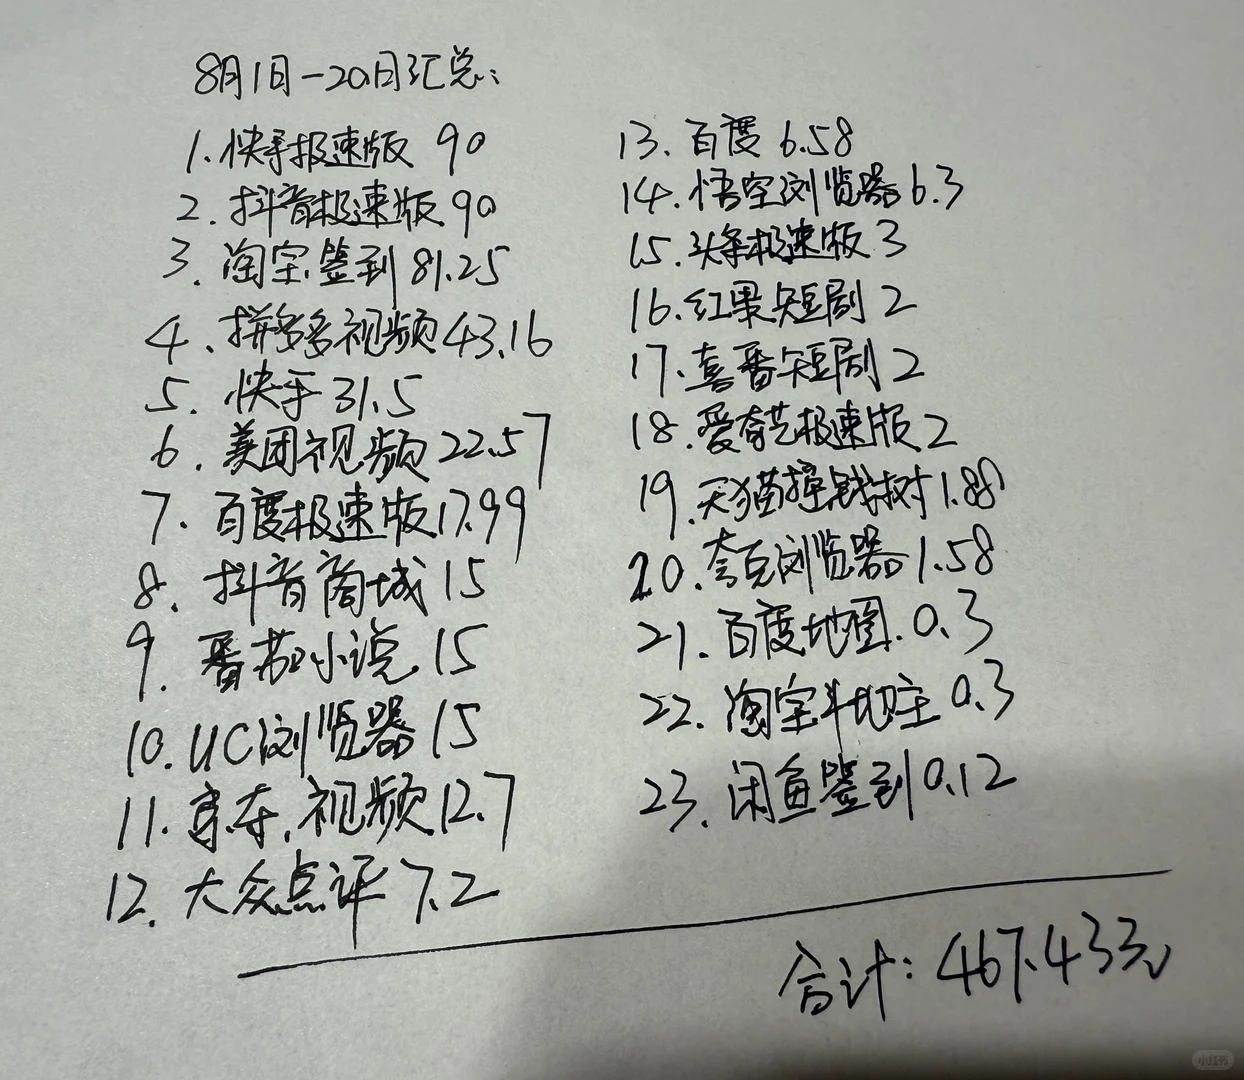 8月1日-20日汇总：
1. 快手极速版 90
2. 抖音极速版 90
3. 淘宝签到 81.25
4. 拼多多视频 43.16
5. 快手 31.5
6. 美团视频 22.57
7. 百度极速版 17.99
8. 抖音商城 15
9. 番茄小说 15
10. UC浏览器 15
11. 京东视频 12.7
12. 大众点评 7.2
13. 百度 6.58
14. 悟空浏览器 6.3
15. 头条极速版 3
16. 红果短剧 2
17. 喜番短剧 2
18. 爱奇艺极速版 2
19. 天猫摇钱树 1.88
20. 夸克浏览器 1.58
21. 百度地图 0.3
22. 淘宝斗地主 0.3
23. 闲鱼签到 0.12
合计：467.433元
小红书